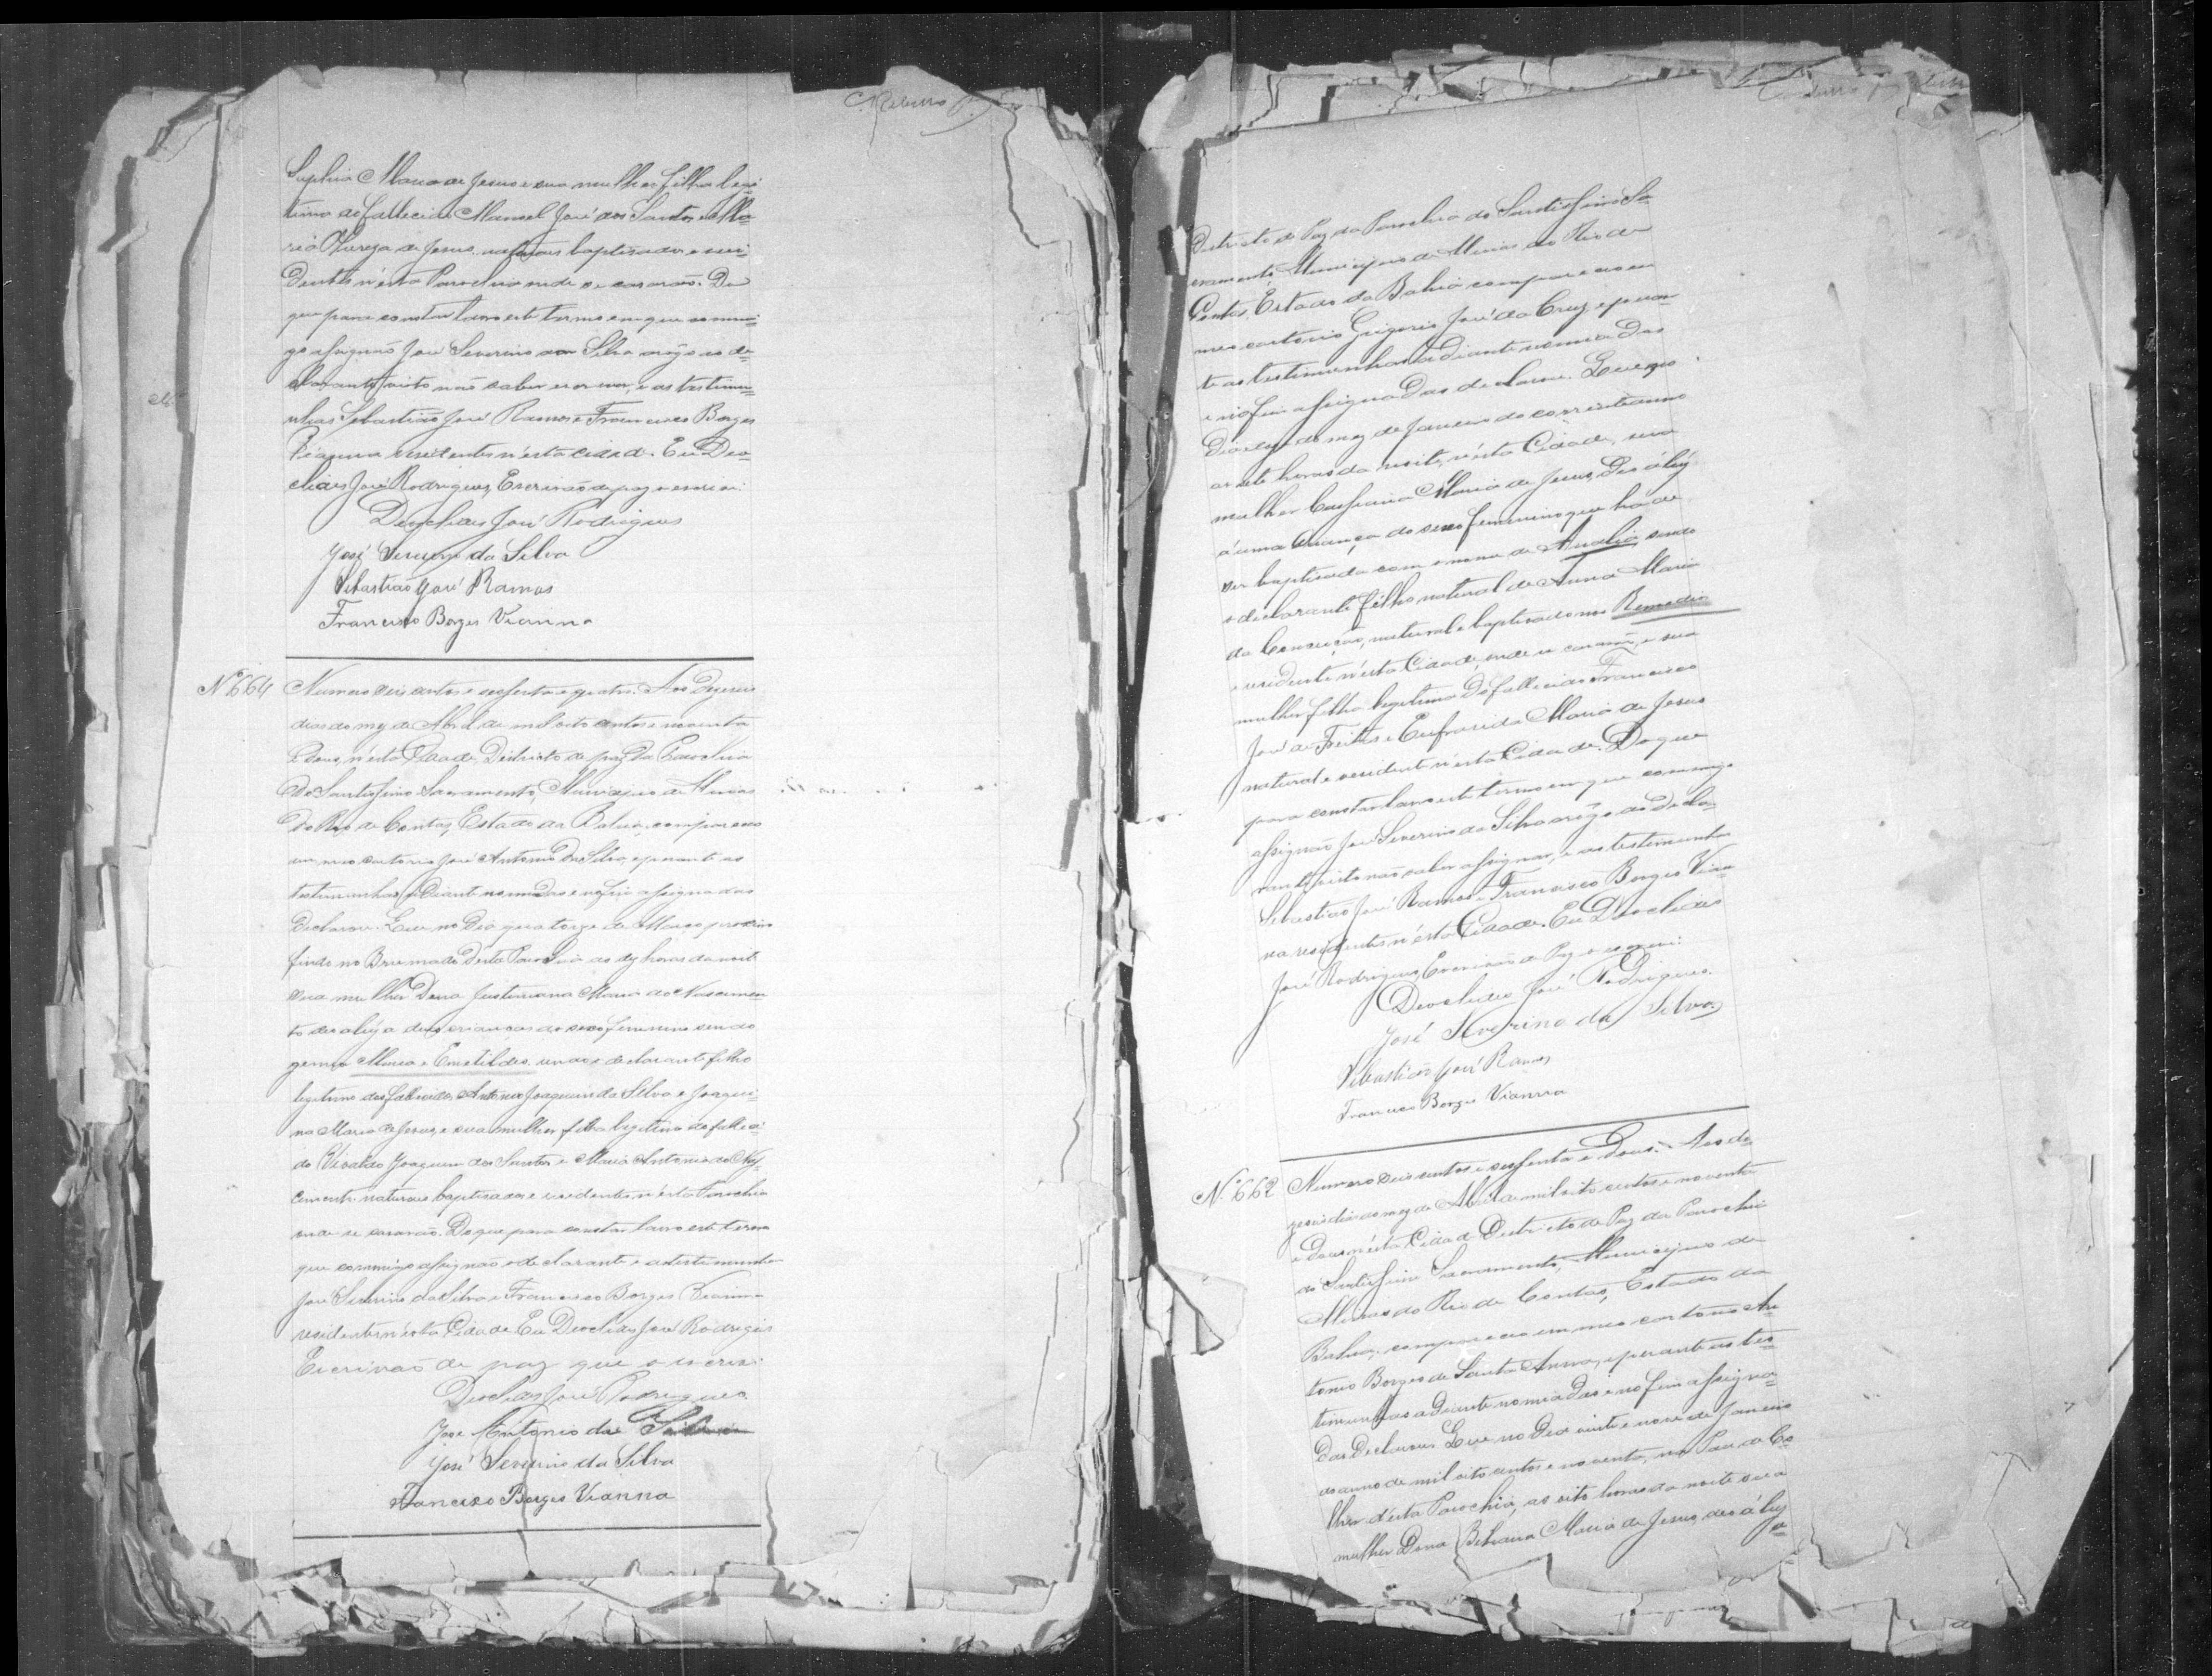 Ribeiro
Maria de Jesus e sua mulher filha legi
tima do fallecido Manoel José dos Santos e Ma
ria Thereza de Jesus naturaes baptisados e resi
dentes n'esta Parochia onde se casarão. Do
que para constar lavro este termo em que commi
go assignão José Severino da Silva arôgo do de
clarante visto não saber escrever, e as testimu
nhas Sebastião José Ramos e Francisco Borges
Vianna residentes n'esta cidade. Eu Deo
clides José Rodrigues, Escrivão de paz o escrevi.
Deoclides José Rodrigues
José Severino da Silva
Sebastião José Ramos
Francisco Borges Vianna
Nº 664 Numero seis centos e sessenta e quatro. Aos dezeseis
dias do mez de Abril de mil oito centos e noventa
e dous, n'esta Cidade, Districto de paz da Parochia
do Santissimo Sacramento, Municipio de Minas
do Rio de Contas, Estado da Bahia, compareceo
em meo cartorio José Antonio da Silva, e perante as
testimunhas adiante nomeadas e no fim assignadas
declarou: Que no dia quatorze de Março proximo
findo no Brumado d'esta Parochia as dez horas da noite
sua mulher Dona Justiniana Maria do Nascimen
to deo a luz a duas crianças do sexo feminino sendo
gemeas Maria e Emetildes, sendo o declarante filho
legitimo dos fallecidos Antonio Joaquim da Silva e Joaqui
na Maria de Jesus, e sua mulher filha legitima do falleci
do Joaquim dos Santos e Maria Antonia do Nas
cimento naturaes baptisados e residentes n'esta Parochia
onde se casarão. Do que para constar lavro este termo
que commigo assignão o declarante e as testimunhas
José Severino da Silva e Francisco Borges Vianna
residentes n'esta Cidade Eu Deoclides José Rodrigues
Escrivão de paz que o escrevi.
Deoclides José Rodrigues
José Antonio da
José Severino da Silva
Francisco Borges Vianna
Districto de Paz da Parochia do Santissimo Sa
cramento, Municipio de Minas do Rio de
Contas, Estado da Bahia compareceo em
meo cartorio Grigorio José da Cruz, e peran
te as testimunhas adiante nomeadas
e no fim assignadas declarou: Que no
dia do mez de Janeiro do corrente anno
as sete horas da noite, n'esta Cidade, sua
mulher Maria de Jesus, deo á luz
á uma criança do sexo feminino que há de
ser baptisada com o nome de Analia sendo
o declarante filho natural de Anna Maria
da Conceição, natural e baptisado nos Remedios
e residente n'esta Cidade, onde se casarão, e sua
mulher filha legitima do fallecido Francisco
José de Freitas e Eufrasida Maria de Jesus
natural e residente n'esta Cidade. Do que
para constar lavro este termo em que commigo
assignão José Severino da Silva arôgo do decla
rante visto não saber assignar, e as testimunhas
Sebastião José Ramos e Francisco Borges Vian
na residentes n'esta Cidade. Eu Deoclides
José Rodrigues, Escrivão de Paz o escrevi:
Deoclides José Rodrigues.
José Severino da Silva
Sebastião José Ramos
Francisco Borges Vianna
Nº 662 Numero seis centos e sessenta e Dous. Aos de
zeseis dias do mez de Abril de mil oito centos e noventa
e dous n'esta Cidade Districto de Paz da Parochia
do Santissimo Sacramento, Municipio de
Minas do Rio de Contas, Estado da
Bahia, compareceo em meo cartorio An
tonio Borges de Santa Anna, e perante as tes
timunhas adiante nomeadas e no fim assigna
das declarou: Que no dia vinte e nove de Janeiro
do anno de mil oito centos e noventa, no Pau de Co
lher d'esta Parochia, as oito horas da noite sua
mulher Dona Maria de Jesus, deo á luz
a